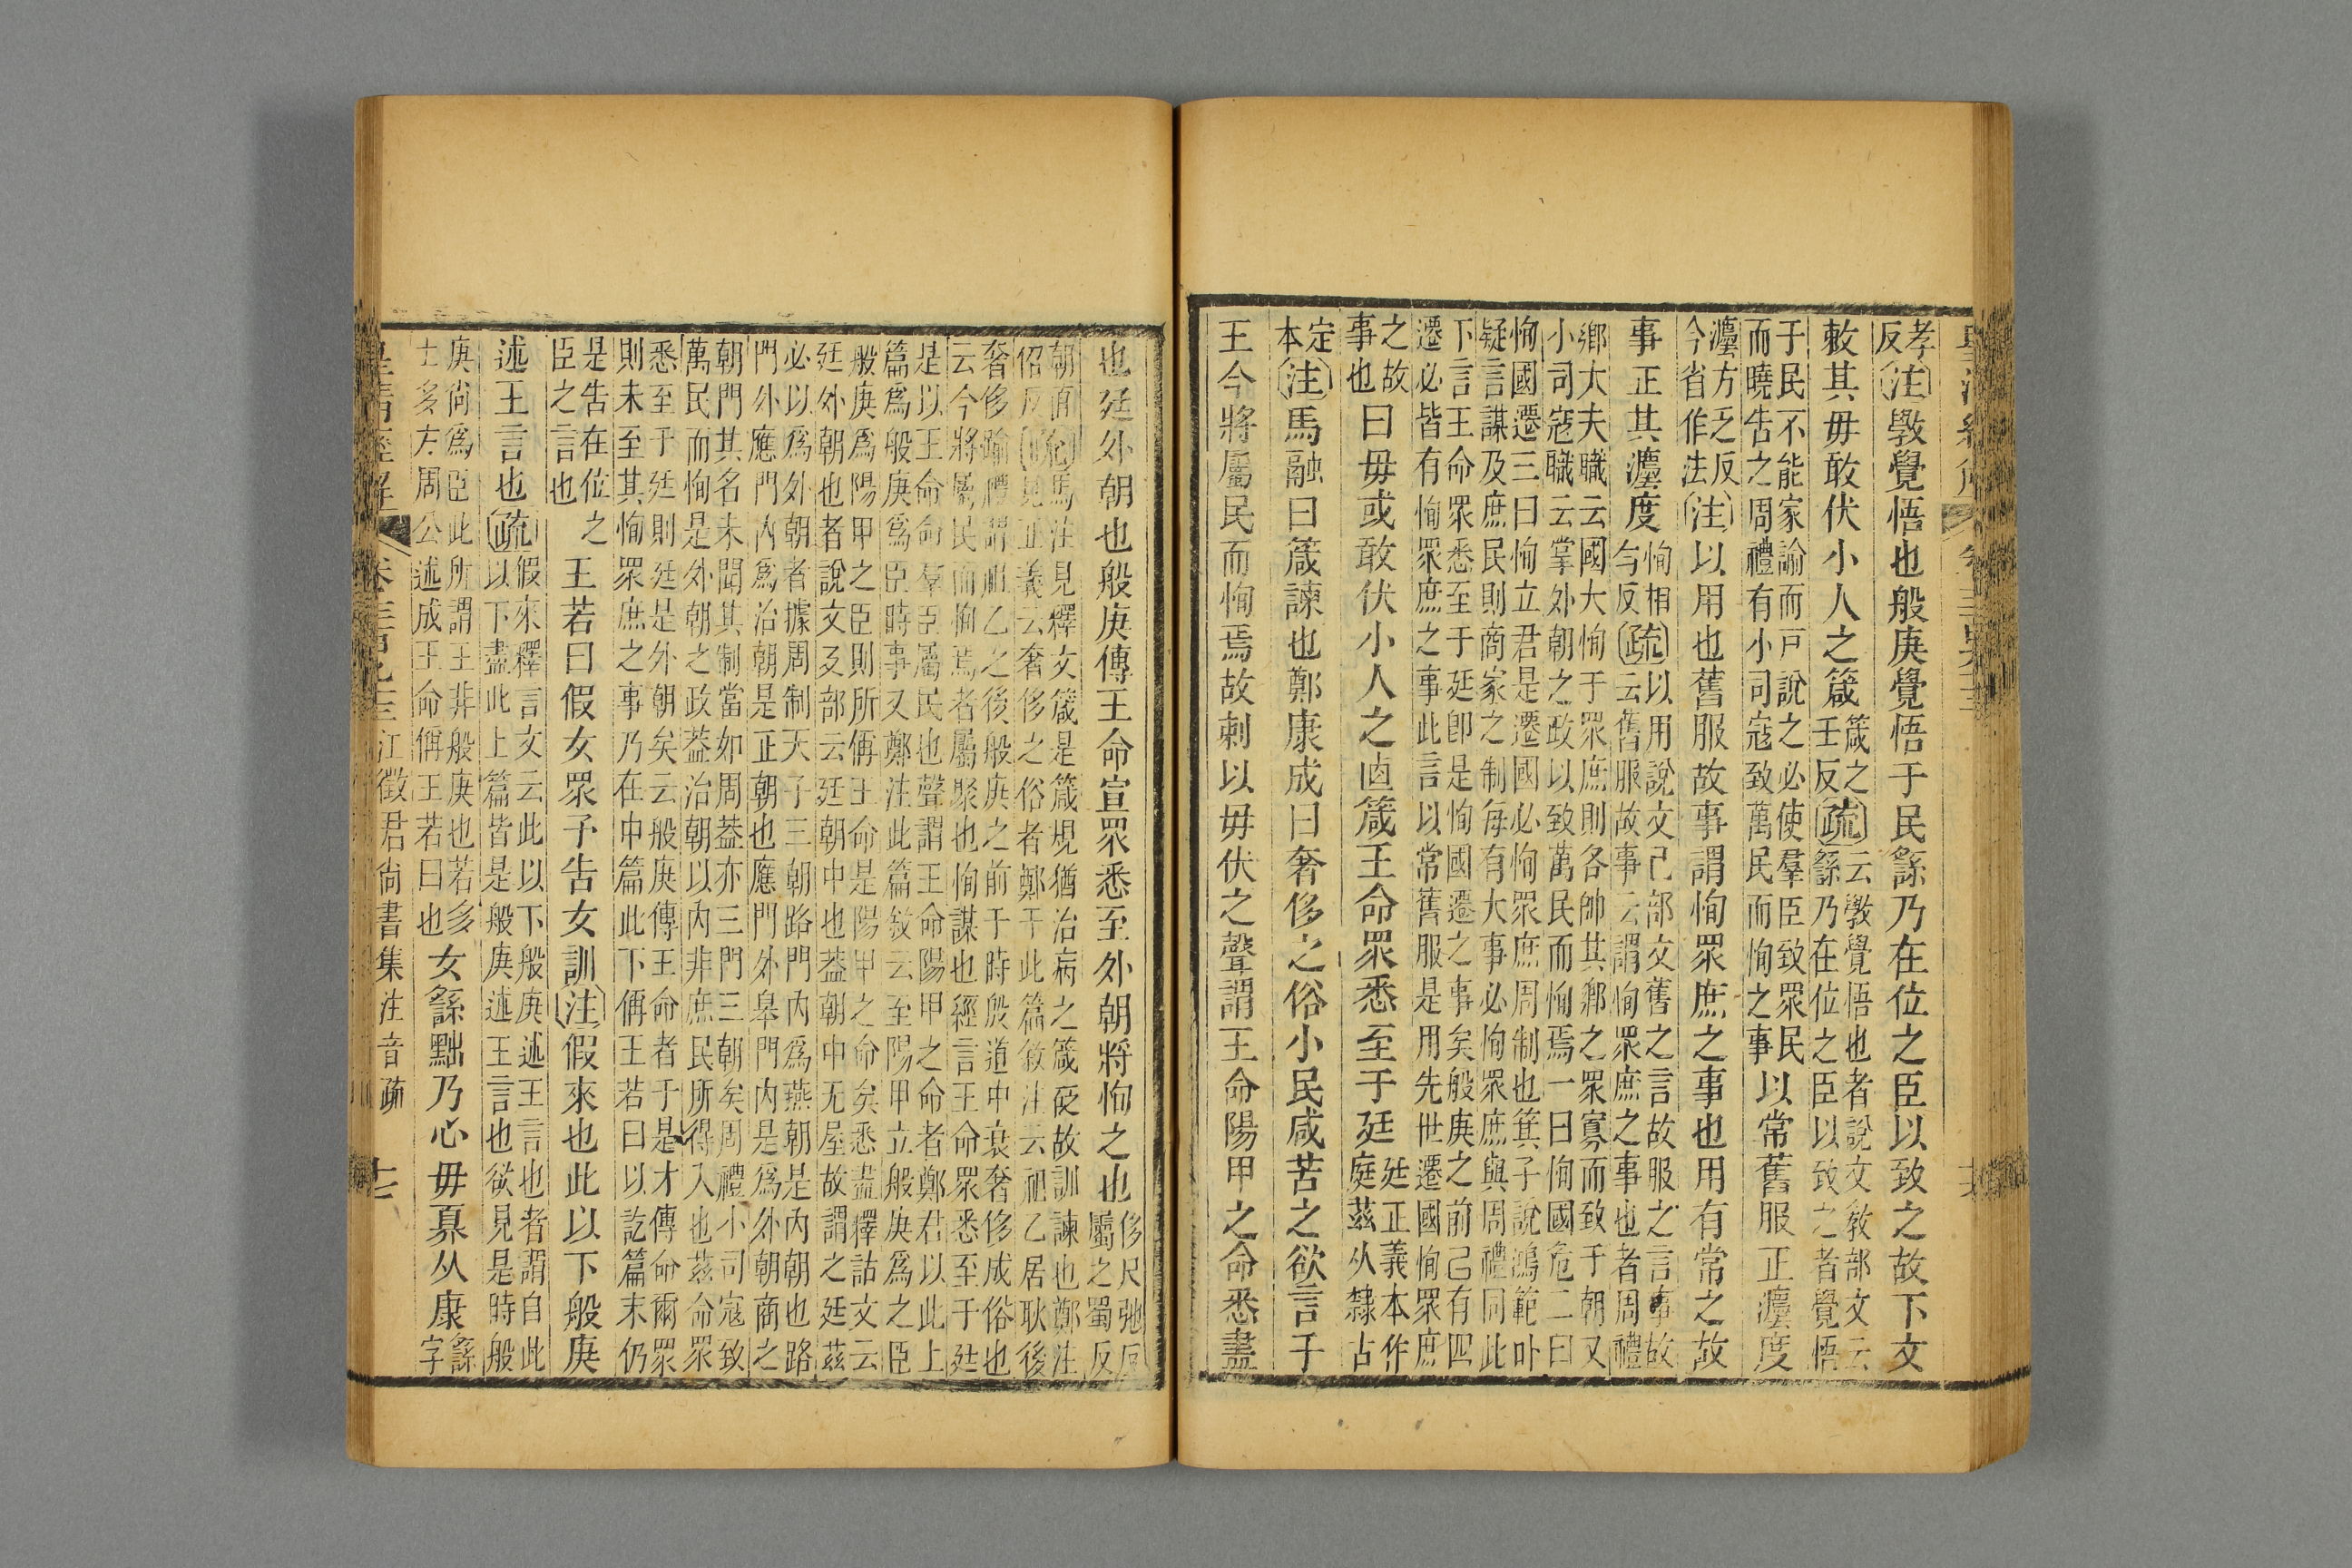 皇清經解 卷三百九十三
孝反注斆覺悟也般庚覺悟于民繇乃在位之臣以致之故下文
敕其毋敢伏小人之箴箴之壬反疏云斆覺悟也者說文教部文云繇乃在位之臣以致之者覺悟
于民不能家諭而戸說之必使羣臣致眾民而曉告之周禮有小司寇致萬民而恂之事以常舊服正灋度
灋方乏反今省作法注以用也舊服故事謂恂眾庶之事也用有常之故
事正其灋度恂相勻反疏以用說文己部文舊之言故服之言事故云舊服故事云謂恂眾庶之事也者周禮
鄉大夫職云國大恂于眾庶則各帥其鄉之眾寡而致于朝又小司寇職云掌外朝之政以致萬民而恂焉一曰恂國危二曰
恂國遷三曰恂立君是遷國必恂眾庶周制也箕子說鴻範卟疑言謀及庶民則商家之制每有大事必恂眾庶與周禮同此
下言王命眾悉至于廷卽是恂國遷之事矣般庚之前己有四遷必皆有恂眾庶之事此言以常舊服是用先世遷國恂眾庶
之故事也曰毋或敢伏小人之卣箴王命眾悉至于廷廷正義本作庭茲从隸古
定本注馬融曰箴諫也鄭康成曰奢侈之俗小民咸苦之欲言于
王今將屬民而恂焉故刺以毋伏之聲謂王命陽甲之命悉盡
也廷外朝也般庚傳王命宣眾悉至外朝將恂之也侈尺弛反屬之蜀反
朝直佋反疏馬注見釋文箴是箴規猶治病之箴砭故訓諫也鄭注見正義云奢侈之俗者鄭于此篇敘注云祖乙居耿後
奢侈踰禮謂祖乙之後般庚之前于時殷道中衰奢侈成俗也云今將屬民而恂焉者屬聚也恂謀也經言王命眾悉至于廷
是以王命命羣臣屬民也聲謂王命陽甲之命者鄭君以此上篇爲般庚爲臣時事又鄭注此篇敘云至陽甲立般庚爲之臣
般庚爲陽甲之臣則所偁王命是陽甲之命矣悉盡釋詁文云廷外朝也者說文廴部云廷朝中也葢朝中无屋故謂之廷茲
必以爲外朝者據周制天子三朝路門內爲燕朝是內朝也路門外應門內爲治朝是正朝也應門外皋門內是爲外朝商之
朝門其名未聞其制當如周葢亦三門三朝矣周禮小司寇致萬民而恂是外朝之政葢治朝以內非庶民所得入也茲命眾
悉至于廷則廷是外朝矣云般庚傳王命者于是才傳命爾眾則未至其恂眾庶之事乃在中篇此下偁王若曰以訖篇末仍
是告在位之臣之言也王若曰假女眾予告女訓注假來也此以下般庚
述王言也疏假來釋言文云此以下般庚述王言也者謂自此以下盡此上篇皆是般庚述王言也欲見是時般
庚尚爲臣此所謂王非般庚也若多士多方周公述成王命偁王若曰也女繇黜乃心毋奡从康繇字
皇清經解 卷三百九十三 江徵君尚書集注音疏 七